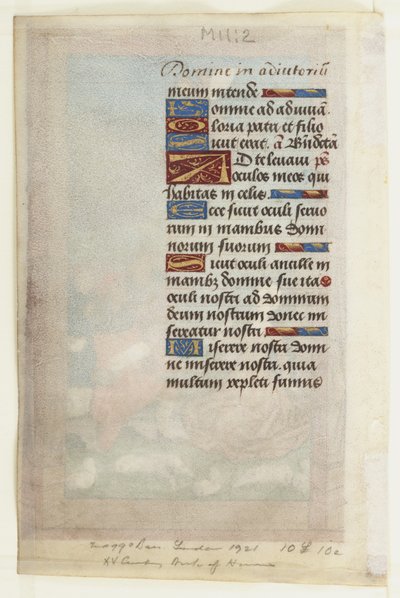 M11:2
Domine in adiutoriũ
meum intende
Domine ad adiuuã.
Gloria patri et filio
Sicut erat. añ Bñdctã
AD te leuaui ps̃
oculos meos qui
habitas in celis
Ecce sicut oculi seruo
rum in manibus domi
norum suorum
Sicut oculi ancille in
manibꝫ domine sue ita
oculi nostri ad dominum
deum nostrum donec mi
sereatur nostri
Miserere nostri domi
ne miserere nostri. quia
multum repleti sumus
Maggs Bros London 1921 10£ 10s
XV Century Book of Hours